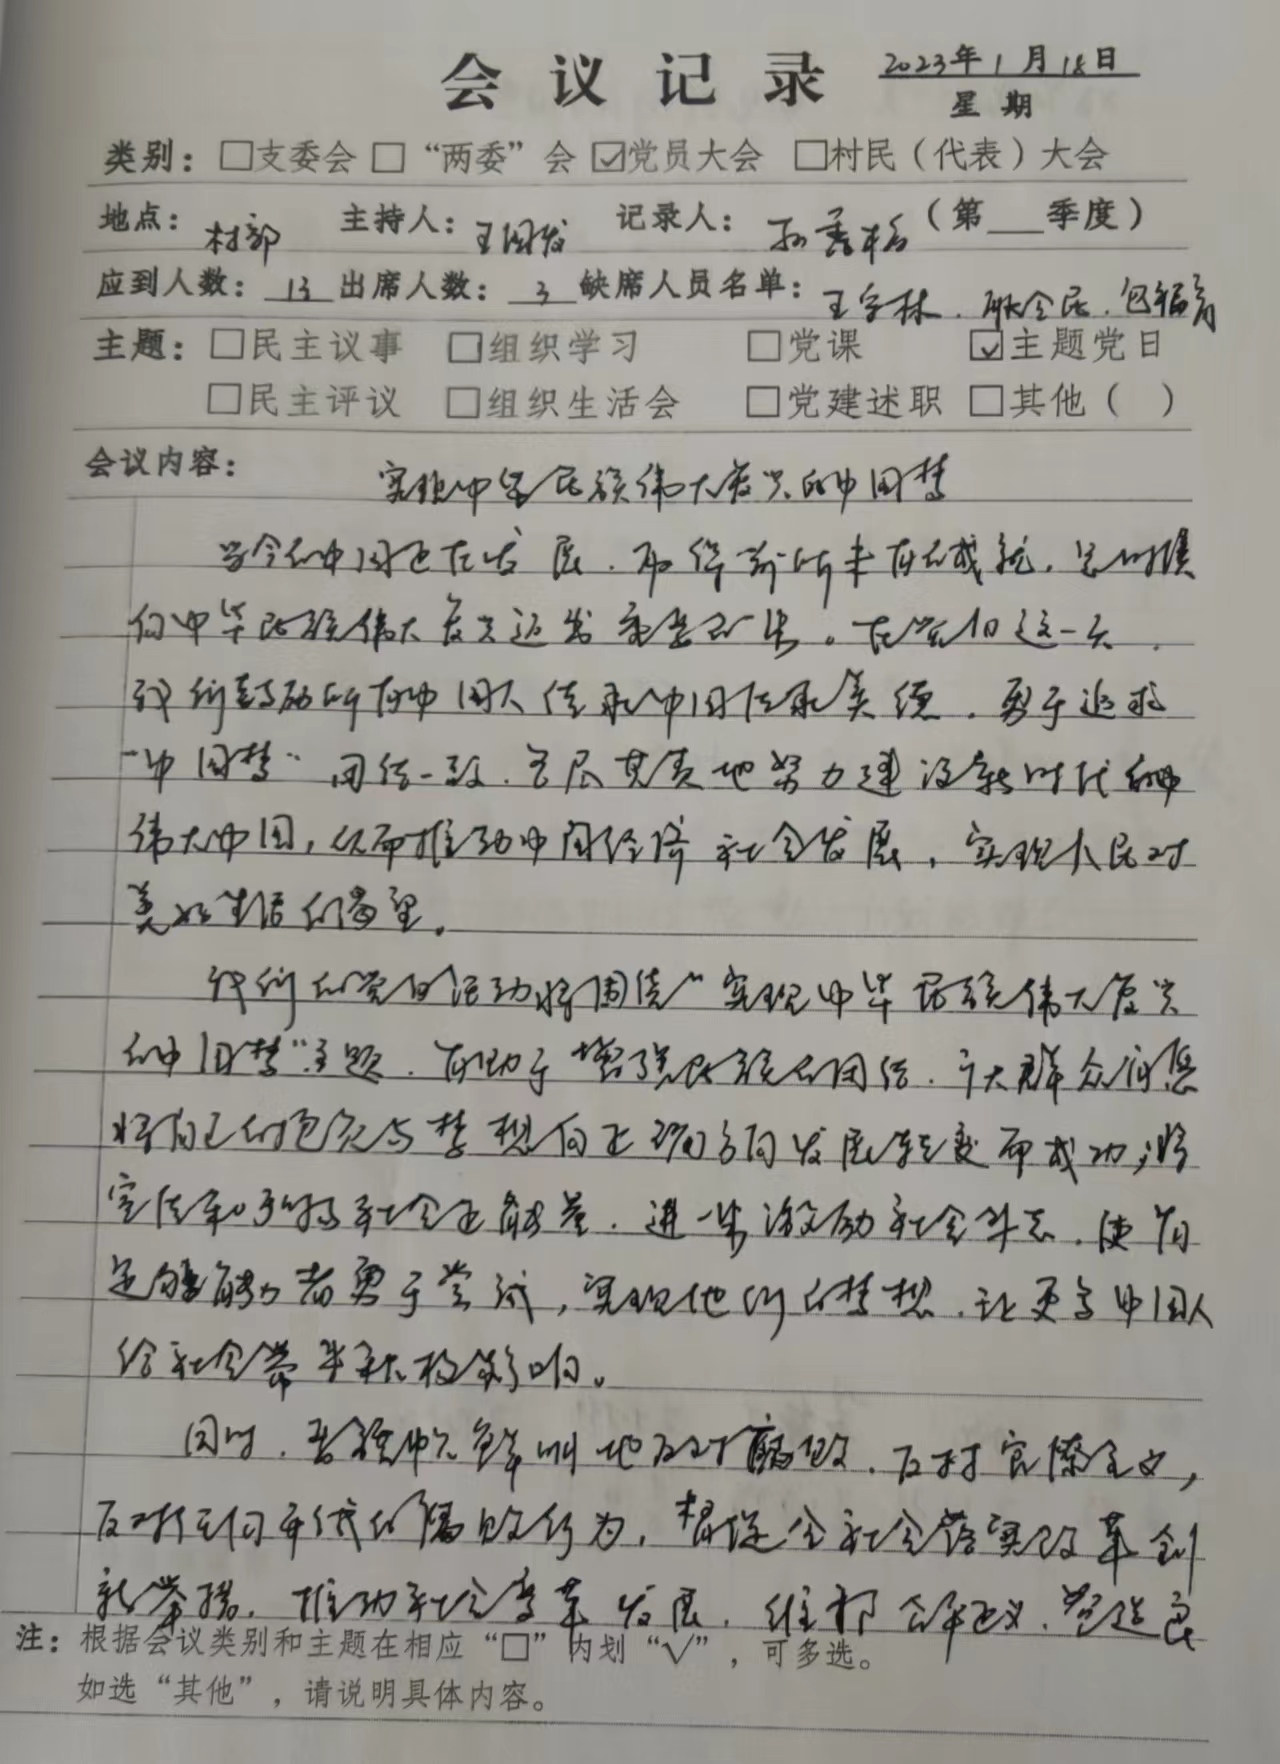 会议记录
2023年1月18日
星期
类别：□支委会 □“两委”会 ☑党员大会 □村民（代表）大会
地点：村部 主持人：王国发 记录人：（第___季度）
应到人数：13 出席人数：3 缺席人员名单：王学林
主题：□民主议事 □组织学习 □党课 ☑主题党日
□民主评议 □组织生活会 □党建述职 □其他（ ）
会议内容：
实现中华民族伟大复兴的中国梦
当今的中国正在发展，取得前所未有的成就，
向中华民族伟大复兴迈出。在党日这一天，
我们鼓励所有中国人传承中国传承美德，勇于追求
“中国梦”团结一致，地努力建设新时代的
伟大中国，从而推动中国经济社会发展，实现人民对
美好生活的渴望。
我们的党日活动将围绕“实现中华民族伟大复兴
的中国梦”主题，有助于增强民族的团结，广大群众
将自己的与梦想向正确方向发展转变而成功；将
宣传和社会正能量，进一步激励社会斗志，使有
足够能力者勇于尝试，实现他们的梦想，让更多中国人
给社会带来积极影响。
同时，地反对腐败，反对官僚主义，
反对任何形式的腐败行为，全社会落实改革创
新举措，推动社会变革发展，维护公平正义，营造良
注：根据会议类别和主题在相应“□”内划“√”，可多选。
如选“其他”，请说明具体内容。